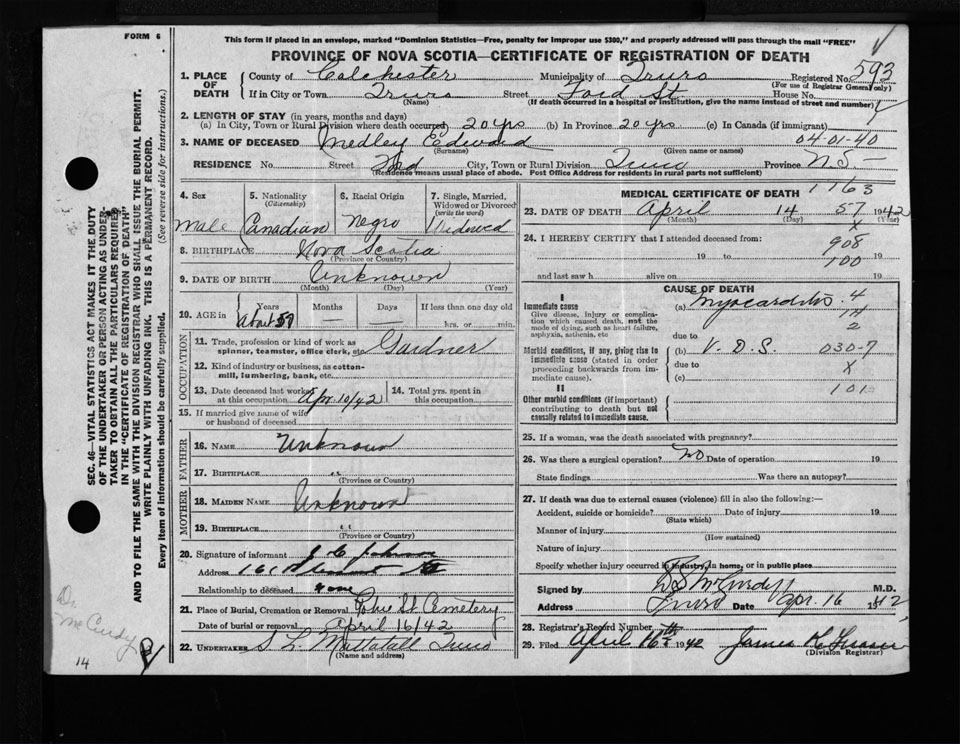 FORM 6
This form if placed in an envelope, marked "Dominion Statistics—Free, penalty for improper use $300," and properly addressed will pass through the mail "FREE"
PROVINCE OF NOVA SCOTIA—CERTIFICATE OF REGISTRATION OF DEATH
1. PLACE OF DEATH
County of Colchester Municipality of Truro Registered No. 593
(For use of Registrar General only)
If in City or Town Truro Street Ford St. House No.
(Name) (If death occurred in a hospital or institution, give the name instead of street and number)
2. LENGTH OF STAY (in years, months and days)
(a) In City, Town or Rural Division where death occurred 20 yrs (b) In Province 20 yrs (c) In Canada (if immigrant)
3. NAME OF DECEASED Medley Edward 04-01-40
(Surname) (Given name or names)
RESIDENCE No. Street City, Town or Rural Division Truro Province N.S.—
(Residence means usual place of abode. Post Office Address for residents in rural parts not sufficient)
4. Sex
male
5. Nationality
(Citizenship)
Canadian
6. Racial Origin
Negro
7. Single, Married, Widowed or Divorced
(write the word)
Widowed
8. BIRTHPLACE Nova Scotia
(Province or Country)
9. DATE OF BIRTH Unknown
(Month) (Day) (Year)
10. AGE
Years Months Days If less than one day old
About 57 — — hrs. or min.
OCCUPATION
11. Trade, profession or kind of work as spinner, teamster, office clerk, etc. Gardner
12. Kind of industry or business, as cotton-mill, lumbering, bank, etc.
13. Date deceased last worked at this occupation Apr 10/42
14. Total yrs. spent in this occupation
15. If married give name of wife or husband of deceased
FATHER
16. NAME Unknown
17. BIRTHPLACE "
(Province or Country)
MOTHER
18. MAIDEN NAME Unknown
19. BIRTHPLACE "
(Province or Country)
20. Signature of informant
Address
Relationship to deceased none
21. Place of Burial, Cremation or Removal Robie St. Cemetery
Date of burial or removal April 16/42
22. UNDERTAKER S. L. Mattatall Truro
(Name and address)
MEDICAL CERTIFICATE OF DEATH
1163
23. DATE OF DEATH April 14 57 1942
(Month) (Day) (Year)
x
24. I HEREBY CERTIFY that I attended deceased from
908
19 to 19
100
and last saw h alive on 19
CAUSE OF DEATH
I
Immediate cause
Give disease, injury or complication which caused death, not the mode of dying, such as heart failure, asphyxia, asthenia, etc
(a) Myocarditis 4
14
2
due to
Morbid conditions, if any, giving rise to immediate cause (stated in order proceeding backwards from immediate cause).
(b) V. D. S. 030-7
due to
x
(c)
II
101
Other morbid conditions (if important) contributing to death but not causally related to immediate cause.
25. If a woman, was the death associated with pregnancy?
26. Was there a surgical operation? No Date of operation 19
State findings Was there an autopsy?
27. If death was due to external causes (violence) fill in also the following:—
Accident, suicide or homicide? Date of injury 19
(State which)
Manner of injury
(How sustained)
Nature of injury
Specify whether injury occurred in industry, in home, or in public place
Signed by McCurdy M.D.
Address Truro Date Apr. 16 1942
28. Registrar's Record Number
29. Filed April 16th 1942 James
(Division Registrar)
SEC. 46—VITAL STATISTICS ACT MAKES IT THE DUTY
OF THE UNDERTAKER OR PERSON ACTING AS UNDER-
TAKER TO OBTAIN ALL THE PARTICULARS REQUIRED
IN THE "CERTIFICATE OF REGISTRATION OF DEATH"
AND TO FILE THE SAME WITH THE DIVISION REGISTRAR WHO SHALL ISSUE THE BURIAL PERMIT.
WRITE PLAINLY WITH UNFADING INK. THIS IS A PERMANENT RECORD.
Every item of information should be carefully supplied. (See reverse side for instructions.)
Dr. McCurdy
14